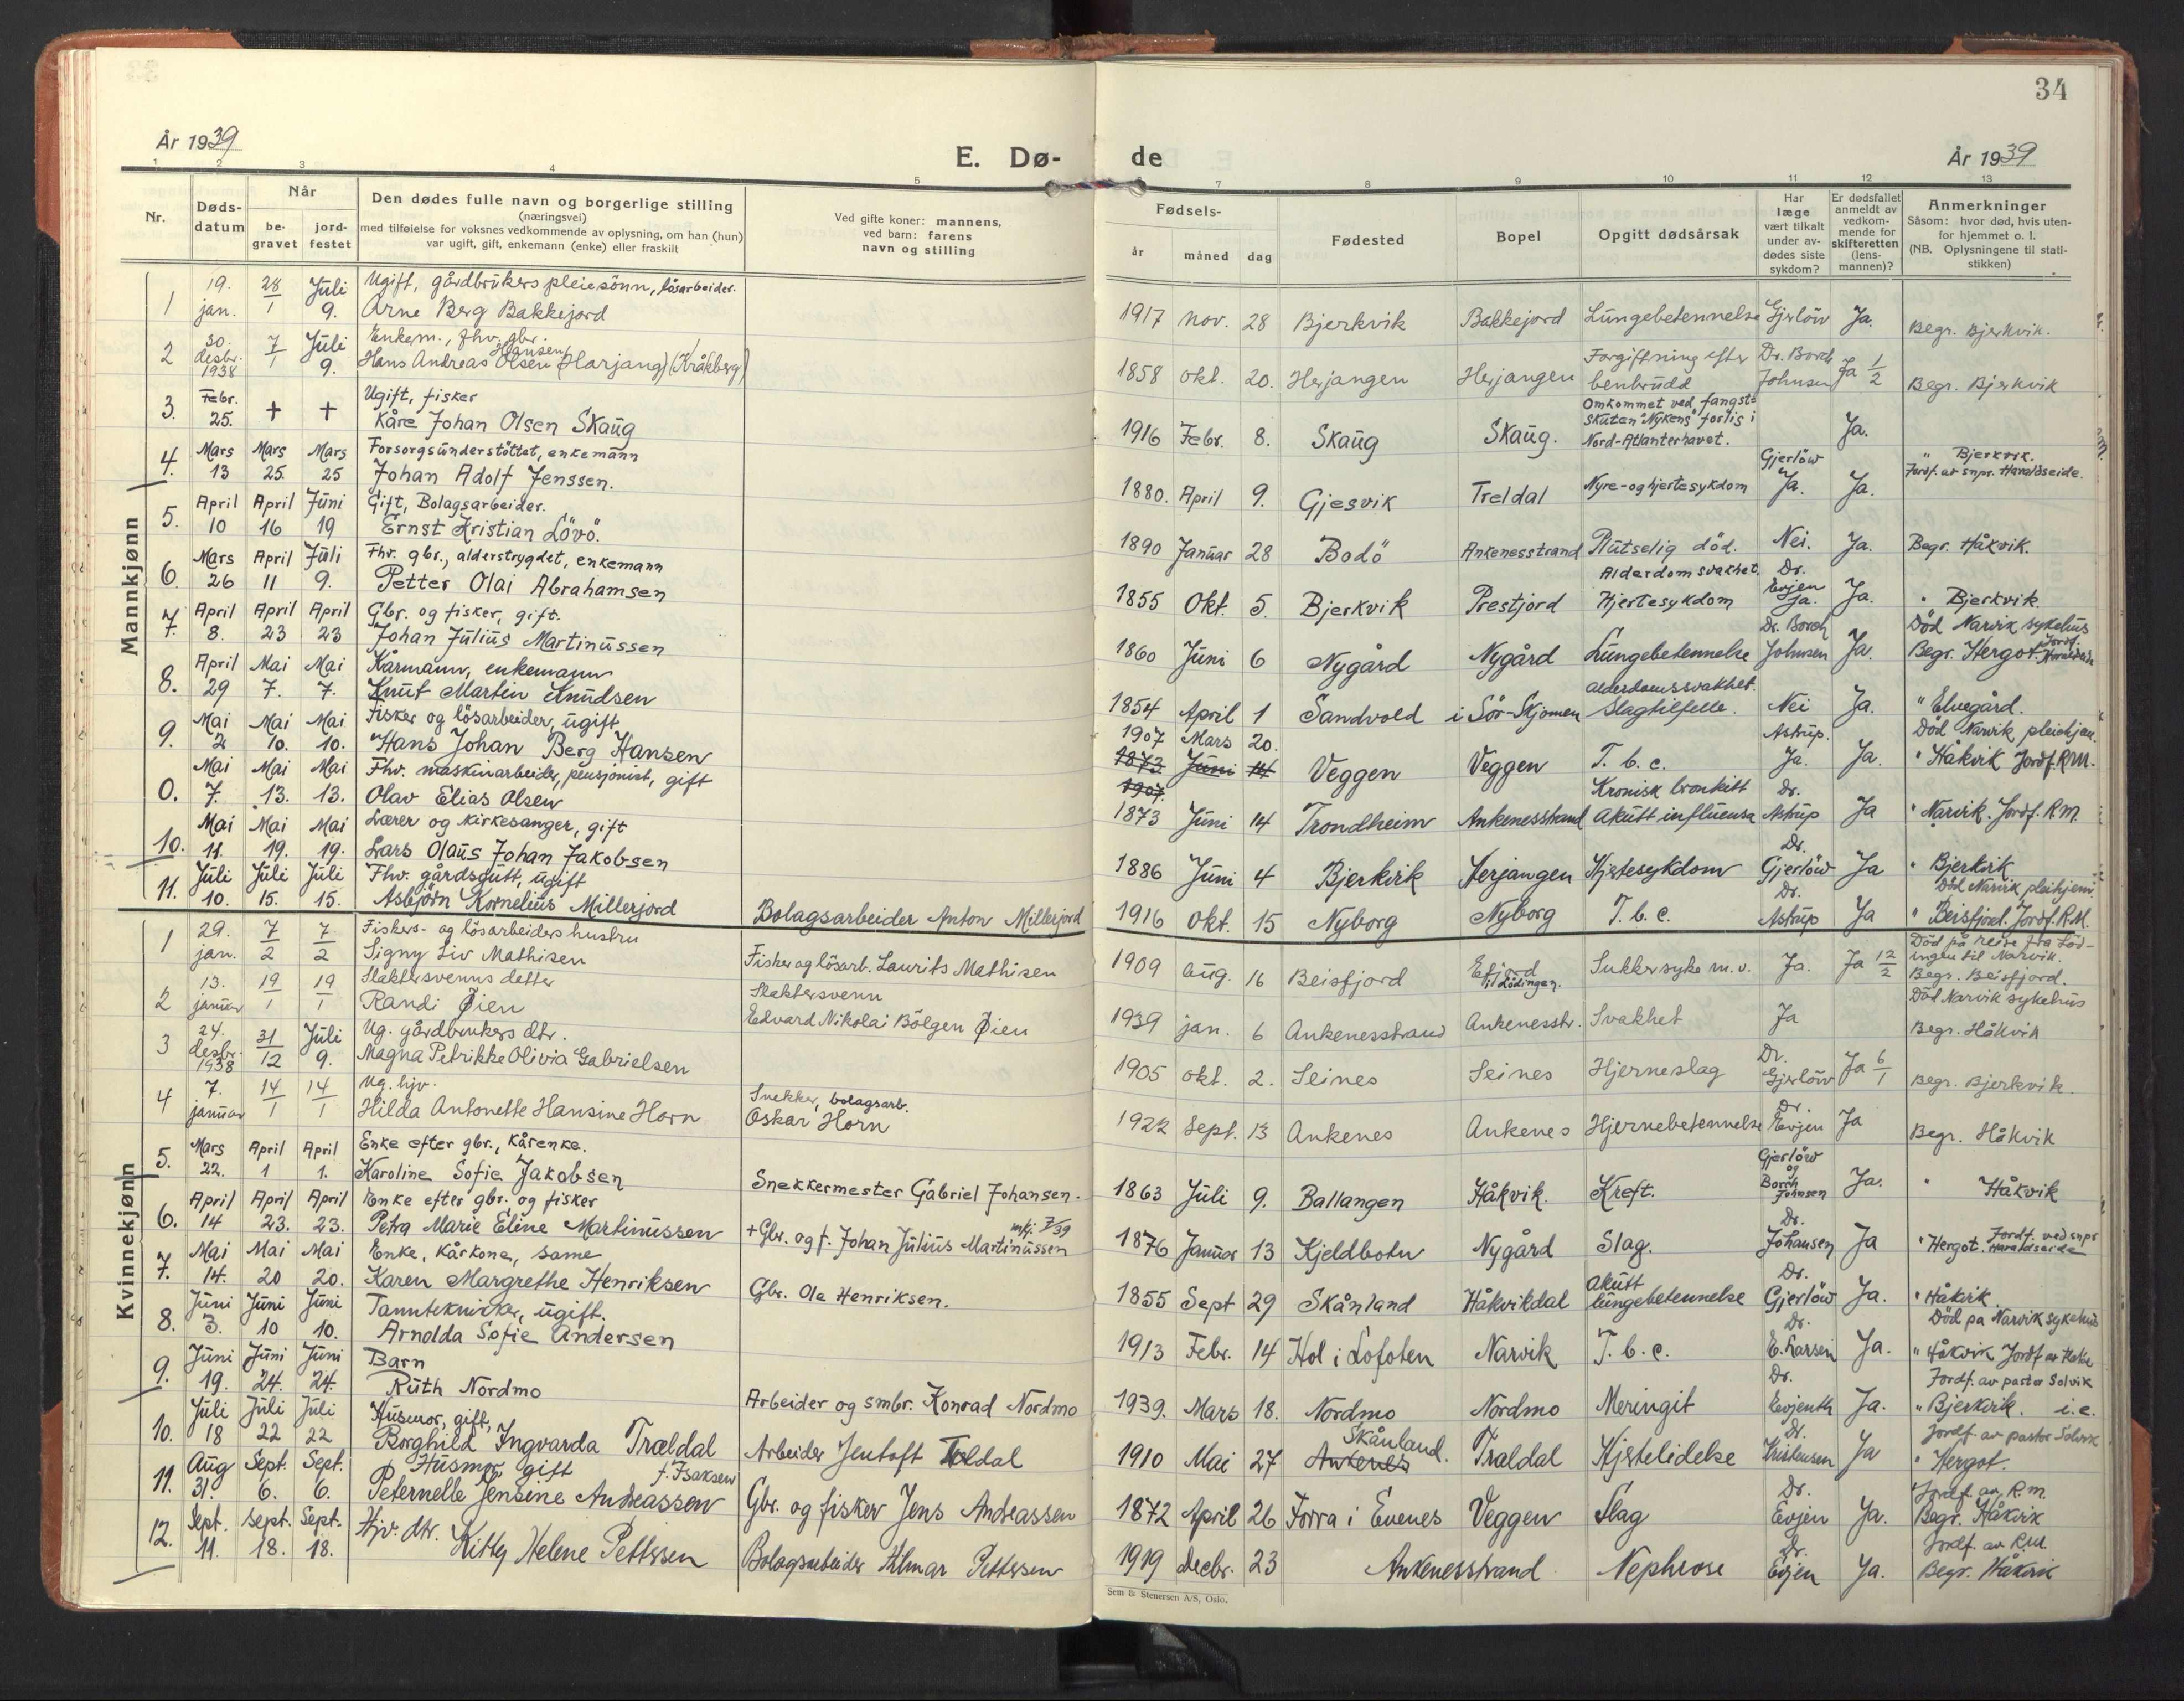 34
År 1939
E. Dø-
de
År 1939
1 2 3 4 5 7 8 9 10 11 12 13
Nr.
Døds-
datum
Når
be-
gravet
jord-
festet
Den dødes fulle navn og borgerlige stilling
(næringsvei)
med tilføielse for voksnes vedkommende av oplysning, om han (hun)
var ugift, gift, enkemann (enke) eller fraskilt
Ved gifte koner: mannens,
ved barn: farens
navn og stilling
Fødsels-
år måned dag
Fødested
Bopel
Opgitt dødsårsak
Har
læge
vært tilkalt
under av-
dødes siste
sykdom?
Er dødsfallet
anmeldt av
vedkom-
mende for
skifteretten
(lens-
mannen)?
Anmerkninger
Såsom: hvor død, hvis uten-
for hjemmet o. l.
(NB. Oplysningene til stati-
stikken)
Mannkjønn
1 19. jan. 28/1 Juli 9. Ugift, gårdbrukers pleiesönn, lösarbeider.
Arne Berg Bakkejord
1917 nov. 28 Bjerkvik Bakkejord Lungebetennelse Gjerlöw Ja. Begr. Bjerkvik.
2 30. desbr. 1938 7/1 Juli 9. Enkem., fhv. gbr.
Hans Andreas Hansen Olsen (Harjang) (Kråkberg)
1858 okt. 20. Herjangen Herjangen Forgiftning efter
benbrudd Dr. Borch
Johnsen Ja 1/2 Begr. Bjerkvik
3. Febr. 25. + + Ugift, fisker
Kåre Johan Olsen Skaug
1916 Febr. 8. Skaug Skaug. Omkommet ved fangst-
skuten "Nykens" forlis i
Nord-Atlanterhavet. Ja.
4. Mars 13 Mars 25. Mars 25 Forsorgsunderstöttet, enkemann
Johan Adolf Jenssen.
1880. April 9. Gjesvik Treldal Nyre- og hjertesykdom Gjerlöw
Ja. Ja. " Bjerkvik.
Jordf. av snpr. Haraldseide.
5. April 10 April 16 Juni 19 Gift, Bolagsarbeider.
Ernst Kristian Lövö.
1890 Januar 28 Bodö Ankenesstrand Plutselig död. Nei. Ja. Begr. Håkvik.
6. Mars 26 April 11 Juli 9. Fhv. gbr., alderstrygdet, enkemann
Petter Olai Abrahamsen
1855 Okt. 5. Bjerkvik Prestjord Alderdomsvakhet.
Hjertesykdom Dr.
Evjen
Ja. Ja. " Bjerkvik.
7. April 8. April 23 April 23 Gbr. og fisker, gift.
Johan Julius Martinussen
1860 Juni 6 Nygård Nygård Lungebetennelse Dr. Borch
Johnsen Ja. Död Narvik sykehus
Begr. Hergot. Jordf.
Haraldseide
8. April 29 Mai 7. Mai 7. Kårmann, enkemann
Knut Martin Knudsen
1854 April 1 Sandvold i Sör-Skjomen Alderdomssvakhet.
Slagtilfelle. Nei Ja. " Elvegård.
9. Mai 2 Mai 10. Mai 10. Fisker og lösarbeider, ugift
Hans Johan Berg Hansen
1907 Mars 20.
1873 Juni 14 Veggen Veggen T. b. c. Astrup.
Ja. Ja. Död Narvik pleiehjem.
" Håkvik Jordf. R.M.
0. Mai 7. Mai 13. Mai 13. Fhv. maskinarbeider, pensjonist, gift
Olav Elias Olsen
1907
1873 Juni 14 Trondheim Ankenesstrand Kronisk bronkitt
Akutt influensa Dr.
Astrup Ja " Narvik. Jordf. R.M.
10. Mai 11. Mai 19. Mai 19. Lærer og kirkesanger, gift
Lars Olaus Johan Jakobsen
1886 Juni 4 Bjerkvik Herjangen Hjertesykdom Dr.
Gjerlöw Ja " Bjerkvik
11. Juli 10. Juli 15. Juli 15. Fhv. gårdsgutt, ugift
Asbjörn Kornelius Millerjord Bolagsarbeider Anton Millerjord
1916 Okt. 15 Nyborg Nyborg T. b. c. Dr.
Astrup Ja Död Narvik pleiehjem.
" Beisfjord. Jordf. R.M.
Kvinnekjønn
1 29. jan. 7/2 7/2 Fiskers- og lösarbeiders hustru
Signy Liv Mathisen Fisker og lösarb. Laurits Mathisen
1909 aug. 16 Beisfjord Efjord
i Lödingen. Sukkersyke m. v. Ja. Ja 12/2 Död på reise fra Löd-
ingen til Narvik.
Begr. Beisfjord.
2 13. januar 19/1 19/1 Slaktersvenns datter
Randi Øien Slaktersvenn
Edvard Nikolai Bölgen Øien
1939 jan. 6 Ankenesstrand Ankenesstr. Svakhet Ja Död Narvik sykehus
Begr. Håkvik
3 24. desbr. 1938 31/12 Juli 9. Ug. gårdbrukers dtr.
Magna Petrikke Olivia Gabrielsen
1905 okt. 2. Seines Seines Hjerneslag Dr.
Gjerlöw Ja 6/1 Begr. Bjerkvik.
4 7. januar 14/1 14/1 Ug. hjv.
Hilda Antonette Hansine Horn Snekker, bolagsarb.
Oskar Horn
1922 Sept. 13 Ankenes Ankenes Hjernebetennelse Dr.
Evjen Ja Begr. Håkvik
5. Mars 22. April 1 April 1. Enke efter gbr., kårenke.
Karoline Sofie Jakobsen Snekkermester Gabriel Johansen.
1863 Juli 9. Ballangen Håkvik. Kreft. Gjerlöw
og
Borch
Johnsen Ja. " Håkvik
6. April 14 April 23. April 23. Enke efter gbr. og fisker
Petra Marie Eline Martinussen + Gbr. og f. Johan Julius Martinussen mkj. 7/39
1876 Januar 13 Kjeldbotn Nygård Slag. Dr.
Johansen Ja " Hergot. Jordf. ved snpr
Haraldseide
7. Mai 14. Mai 20 Mai 20. Enke, kårkone, same
Karen Margrethe Henriksen Gbr. Ole Henriksen.
1855 Sept 29 Skånland Håkvikdal Akutt
lungebetennelse Dr.
Gjerlöw Ja. " Håkvik
8. Juni 3. Juni 10 Juni 10. Tannteknikker, ugift.
Arnolda Sofie Andersen
1913 Febr. 14 Hol i Lofoten Narvik T. b. c. Dr.
E. Larsen Ja. Död på Narvik sykehus
" Håkvik Jordf av
9. Juni 19. Juni 24. Juni 24. Barn
Ruth Nordmo Arbeider og smbr. Konrad Nordmo
1939. Mars 18. Nordmo Nordmo Meningit Dr.
Evjenth Ja. Jordf. av pastor Solvik
" Bjerkvik. i.e.
10. Juli 18 Juli 22 Juli 22 Husmor, gift,
Borghild Ingvarda Trældal Arbeider Jentoft Treldal
1910 Mai 27 Skånland.
Ankenes Trældal Hjertelidelse Dr.
Kristensen Ja Jordf. av pastor Solvik
" Hergot.
11. Aug 31. Sept. 6. Sept. 6. Husmor gift f. Isaksen
Peternelle Jensine Andreassen Gbr. og fisker Jens Andreassen
1872 April 26 Forra i Evenes Veggen Slag Dr.
Evjen Ja. Jordf. av R.m.
Begr. Håkvik
12. Sept. 11. Sept. 18. Sept. 18. Hjv. dtr.
Kitty Helene Pettersen Bolagsarbeider Hilmar Pettersen
1919 Decbr. 23 Ankenesstrand Nephrose Dr.
Evjen Ja. Jordf. av R.M.
Begr. Håkvik
Sem & Stenersen A/S, Oslo.